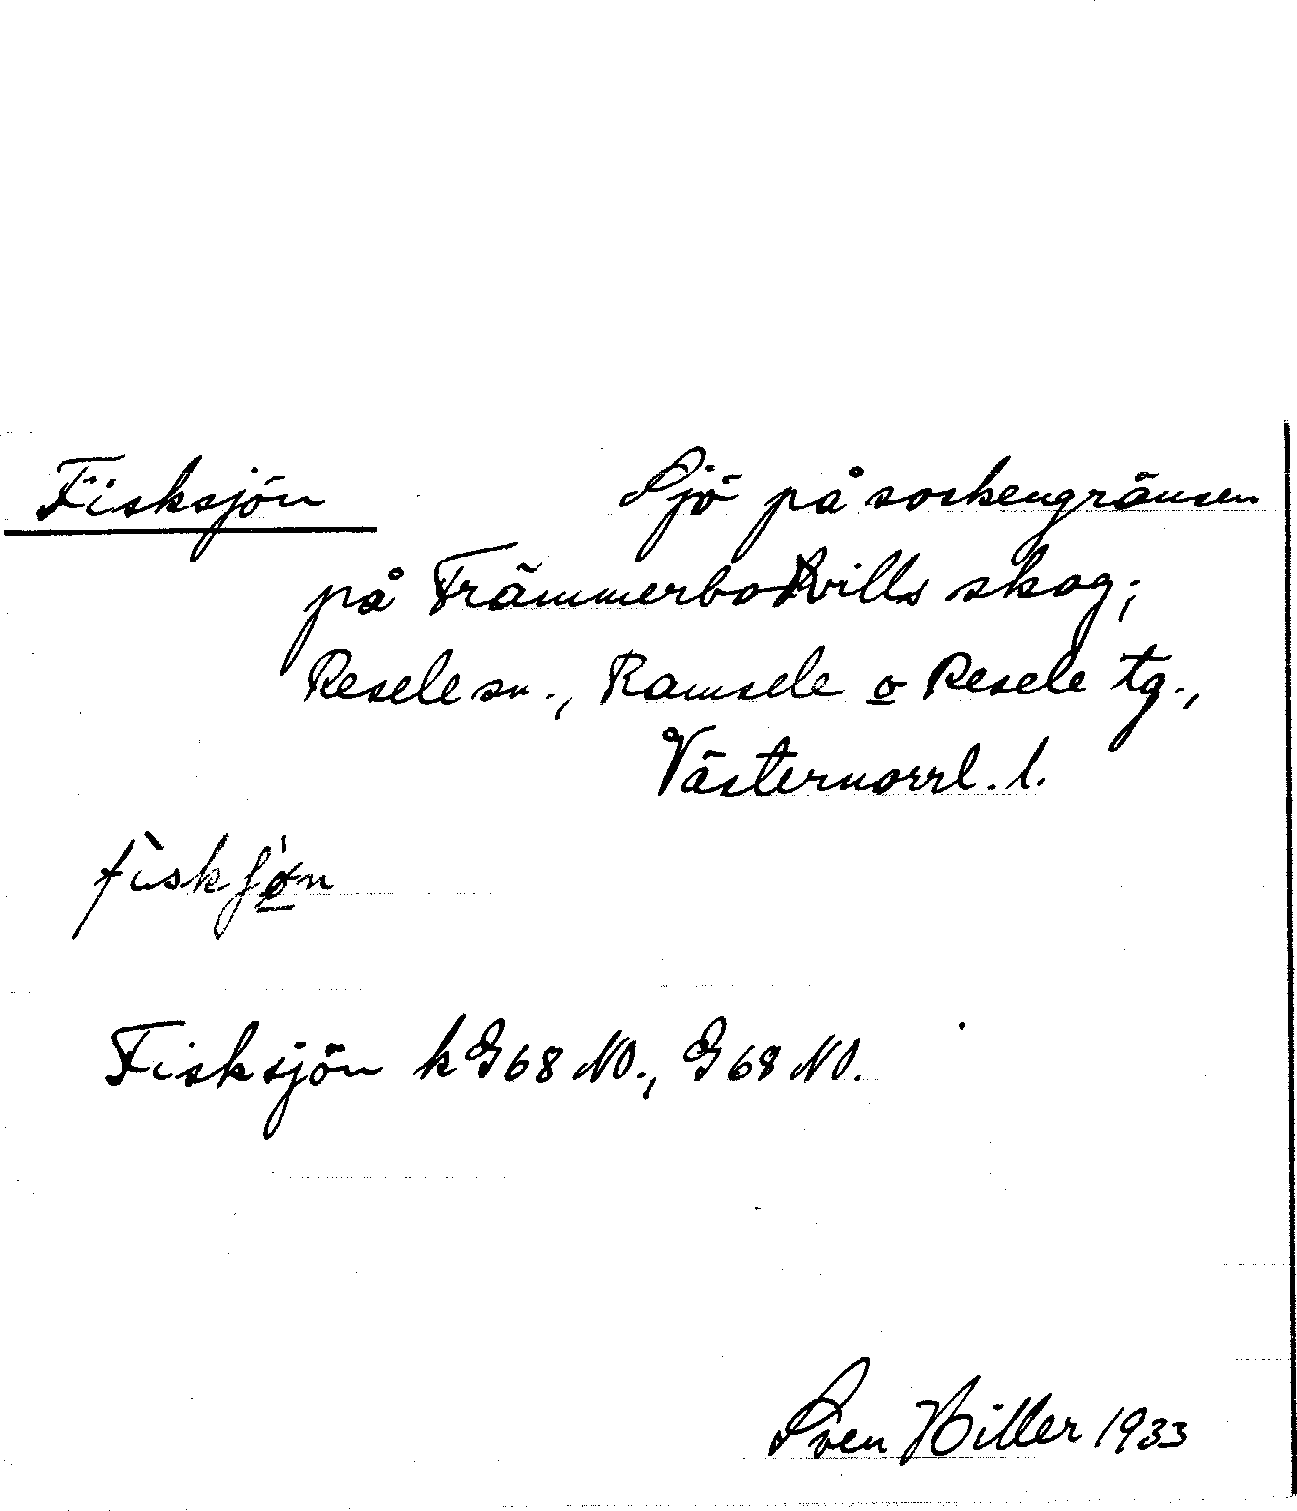 Fisksjön Sjö på sockengränsen
på Främmerbodvills skog;
Resele sn., Ramsele o Resele tg.,
Västernorrl. l.
Fisksjön k G68 NO., G68 NO.
Sven Hiller 1933